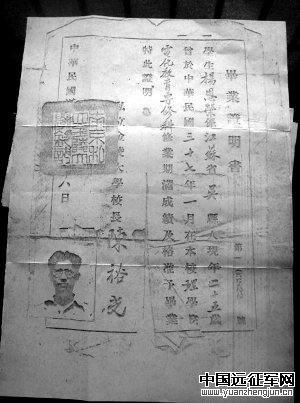 畢業證明書
第一 號
一學生楊恩 係江蘇省吳縣人現年二十五歲
曾於中華民國三十七年一月在本校理學院
電化教育專修科修業期滿成績及格准予畢業
特此證明
私立金陵大學校長陳裕光
中華民國 八日
中国远征军网
www.yuanzhengjun.cn